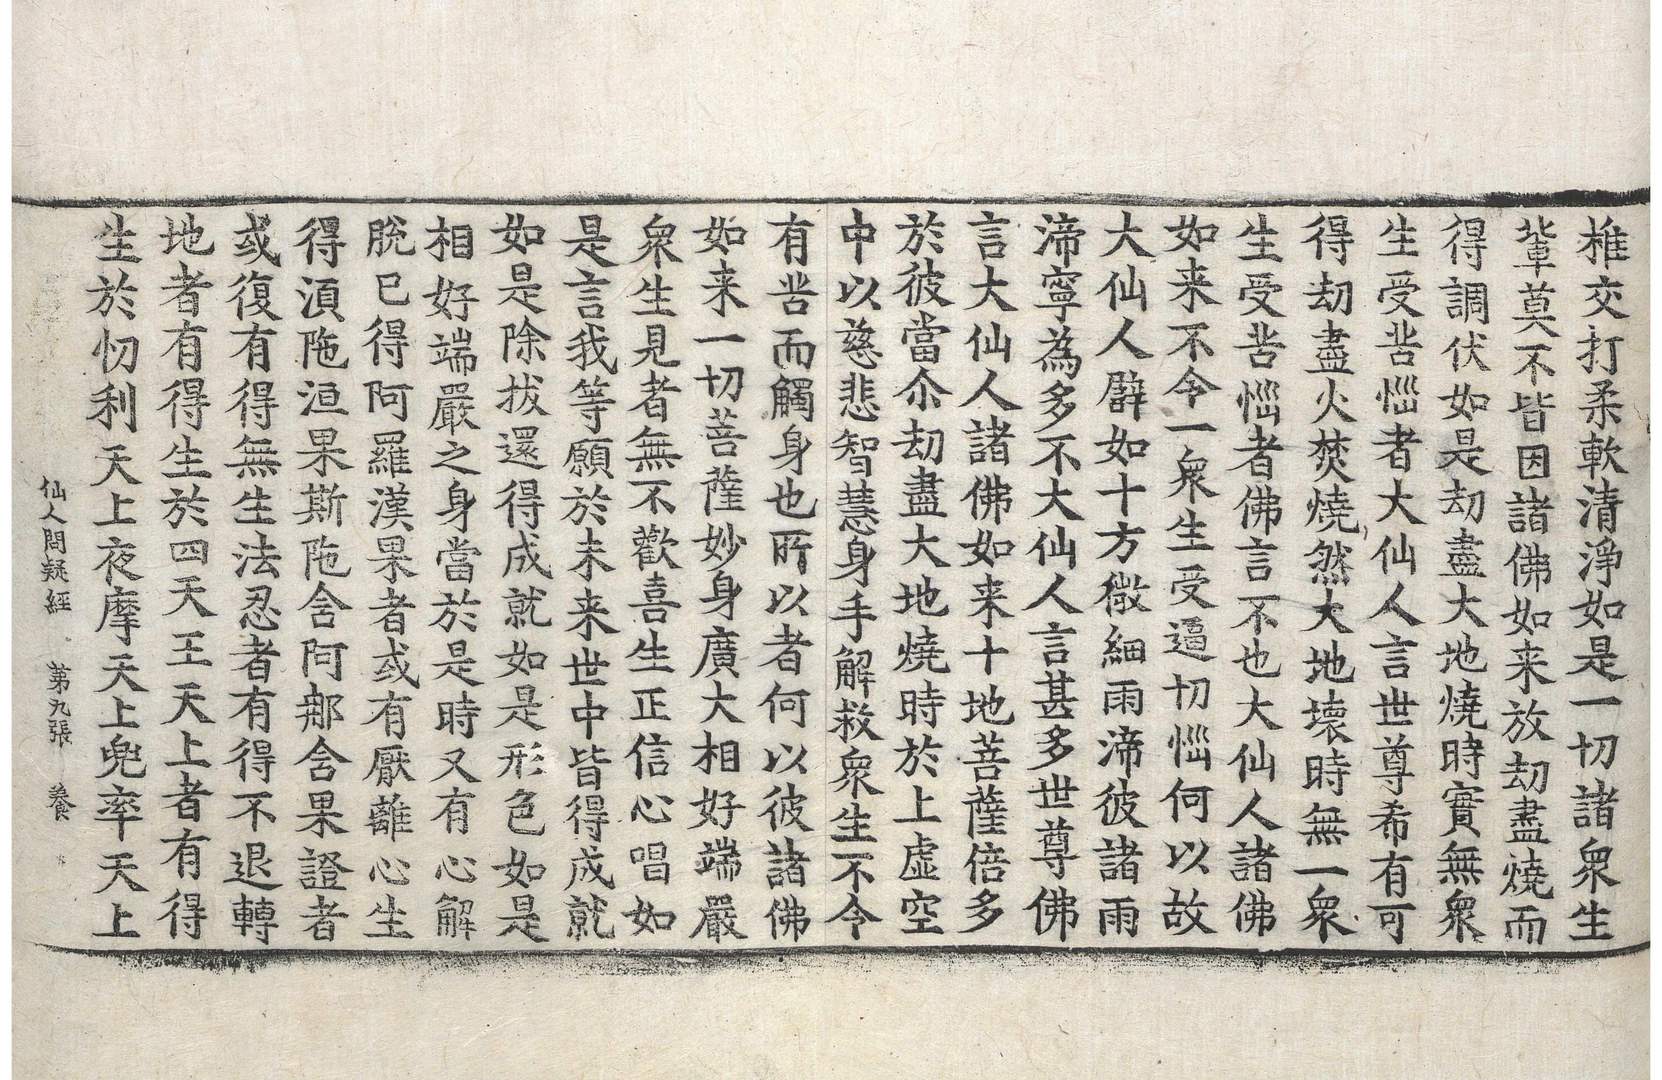 椎交打柔軟清淨如是一切諸衆生
輩莫不皆因諸佛如来放劫盡燒而
得調伏如是劫盡大地燒時實無衆
生受苦惱者大仙人言世尊希有可
得劫盡火焚燒然大地壞時無一衆
生受苦惱者佛言不也大仙人諸佛
如来不令一衆生受逼切惱何以故
大仙人辟如十方微細雨渧彼諸雨
渧寧為多不大仙人言甚多世尊佛
言大仙人諸佛如来十地菩薩倍多
於彼當尒劫盡大地燒時於上虛空
中以慈悲智慧身手解救衆生不令
有苦而觸身也所以者何以彼諸佛
如来一切菩薩妙身廣大相好端嚴
衆生見者無不歡喜生正信心唱如
是言我等願於未来世中皆得成就
如是除拔還得成就如是形色如是
相好端嚴之身當於是時又有心解
脫已得阿羅漢果者或有厭離心生
得湏陁洹果斯陁含阿那含果證者
或復有得無生法忍者有得不退轉
地者有得生於四天王天上者有得
生於忉利天上夜摩天上兜率天上
仙人問疑經 第九張 養